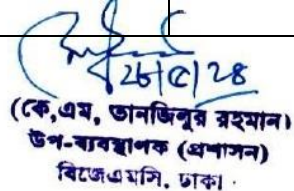 ২৮/৫/২৪
(কে,এম, তানজিলুর রহমান)
উপ-ব্যবস্থাপক (প্রশাসন)
বিজেএমসি, ঢাকা।